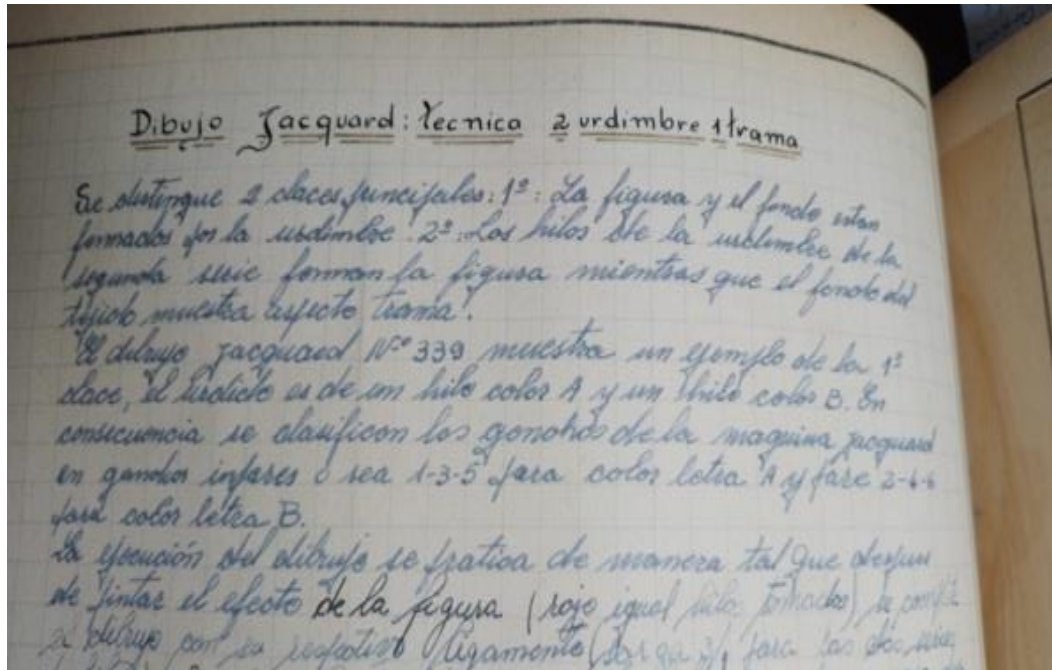 Dibujo Jacquard: Tecnica 2 urdimbre 1 trama
Se distingue 2 claces principales: 1º: La figura y el fondo estan
formados por la urdimbre. 2º: Los hilos de la urdimbre de la
segunda serie forman la figura mientras que el fondo del
tejido muestra aspecto trama.
El dibujo jacquard Nº 339 muestra un ejemplo de la 1º
clace, el urdido es de un hilo color A y un hilo color B. En
consecuencia se clasifican los ganchos de la maquina jacquard
en ganchos inpares o sea 1-3-5 para color letra A y pare 2-4-6
para color letra B.
La ejecución del dibujo se pratica de manera tal que
de pintar el efecto de la figura (rojo igual hilo tomados) se
el dibujo con su respetivo ligamento (sarga 3/1 para las dos